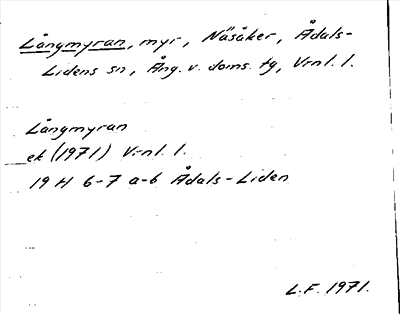 Långmyran, myr, Näsåker, Ådals-
Lidens sn, Ång. v. doms. tg, Vrnl. l.
Långmyran
ek (1971) Vrnl. l.
19 H 6-7 a-b Ådals-Liden
L.F. 1971.